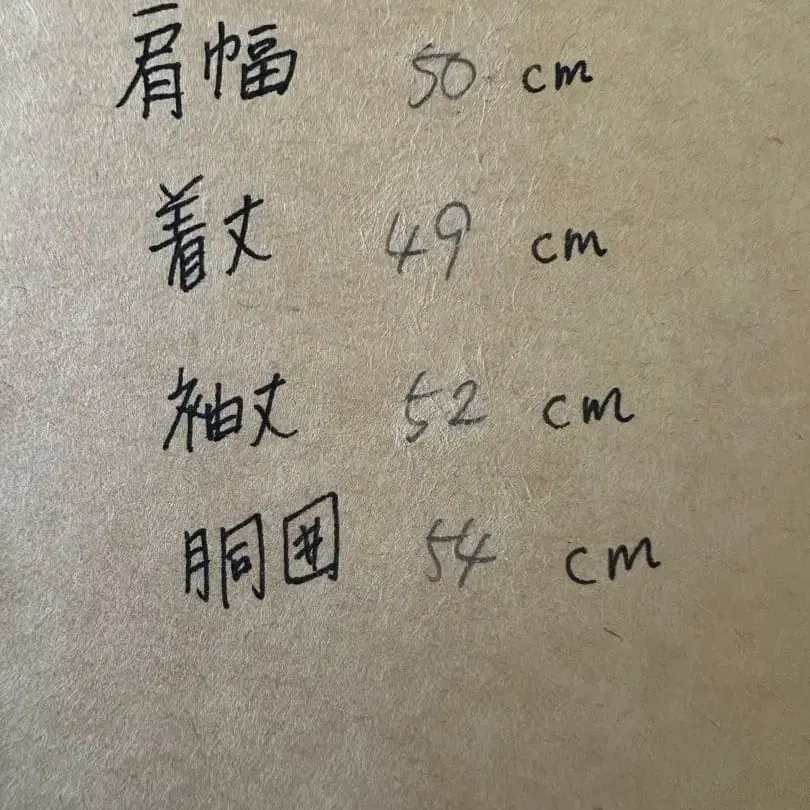 肩幅 50 cm
着丈 49 cm
袖丈 52 cm
胴囲 54 cm